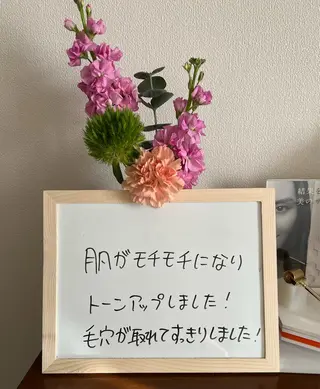 肌がモチモチになり
トーンアップしました!
毛穴が取れてすっきりしました!
結果
美の